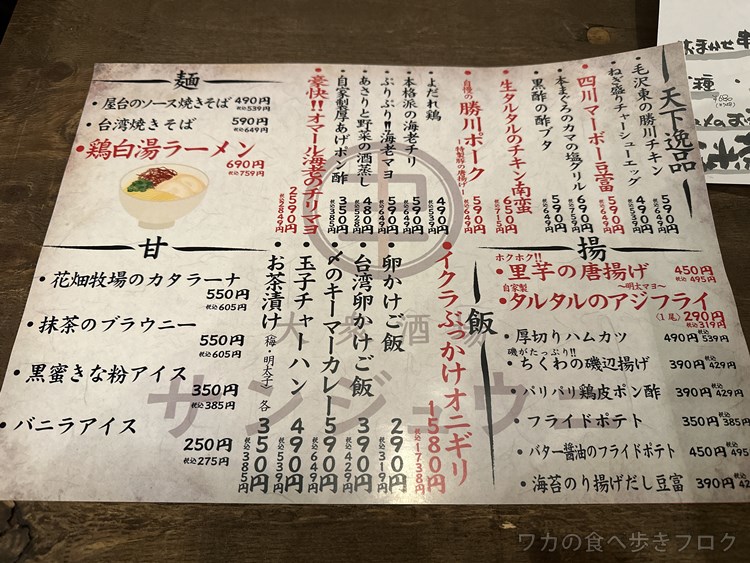 天下逸品
・毛沢東の勝川チキン 590円 税込649円
・ねぎ盛りチャーシューエッグ 490円 税込539円
・四川マーボー豆富 590円 税込649円
・本まぐろのカマの塩グリル 690円 税込759円
・黒酢の酢ブタ 590円 税込649円
・生タルタルのチキン南蛮 650円 税込715円
・自慢の勝川ポーク ー特製豚の唐揚げー 590円 税込649円
・よだれ鶏 490円 税込539円
・本格派の海老チリ 590円 税込649円
・ぷりぷり!!海老マヨ 590円 税込649円
・あさりと野菜の酒蒸し 480円 税込528円
・自家製厚あげポン酢 350円 税込385円
・豪快!!オマール海老のチリマヨ 2590円 税込2849円
麺
・屋台のソース焼きそば 490円 税込539円
・台湾焼きそば 590円 税込649円
・鶏白湯ラーメン
690円
税込759円
甘
・花畑牧場のカタラーナ
550円
税込605円
・抹茶のブラウニー
550円
税込605円
・黒蜜きな粉アイス
350円
税込385円
・バニラアイス
250円
税込275円
飯
・イクラぶっかけオニギリ 1580円 税込1738円
・卵かけご飯 290円 税込319円
・台湾卵かけご飯 390円 税込429円
・〆のキーマーカレー 590円 税込649円
・玉子チャーハン 490円 税込539円
・お茶漬け(梅・明太子)各 350円 税込385円
揚
ホクホク!!
・里芋の唐揚げ 450円 税込495円
自家製 〜明太マヨ〜
・タルタルのアジフライ
(1尾)290円
税込319円
・厚切りハムカツ 490円 税込539円
磯がたっぷり!!
・ちくわの磯辺揚げ 390円 税込429円
・パリパリ鶏皮ポン酢 390円 税込429円
・フライドポテト 350円 税込385円
・バター醤油のフライドポテト 450円 税込495
・海苔のり揚げだし豆富 390円 税込42
大衆酒場
サンジュウ
おまかせ串
種
ワカの食べ歩きブログ